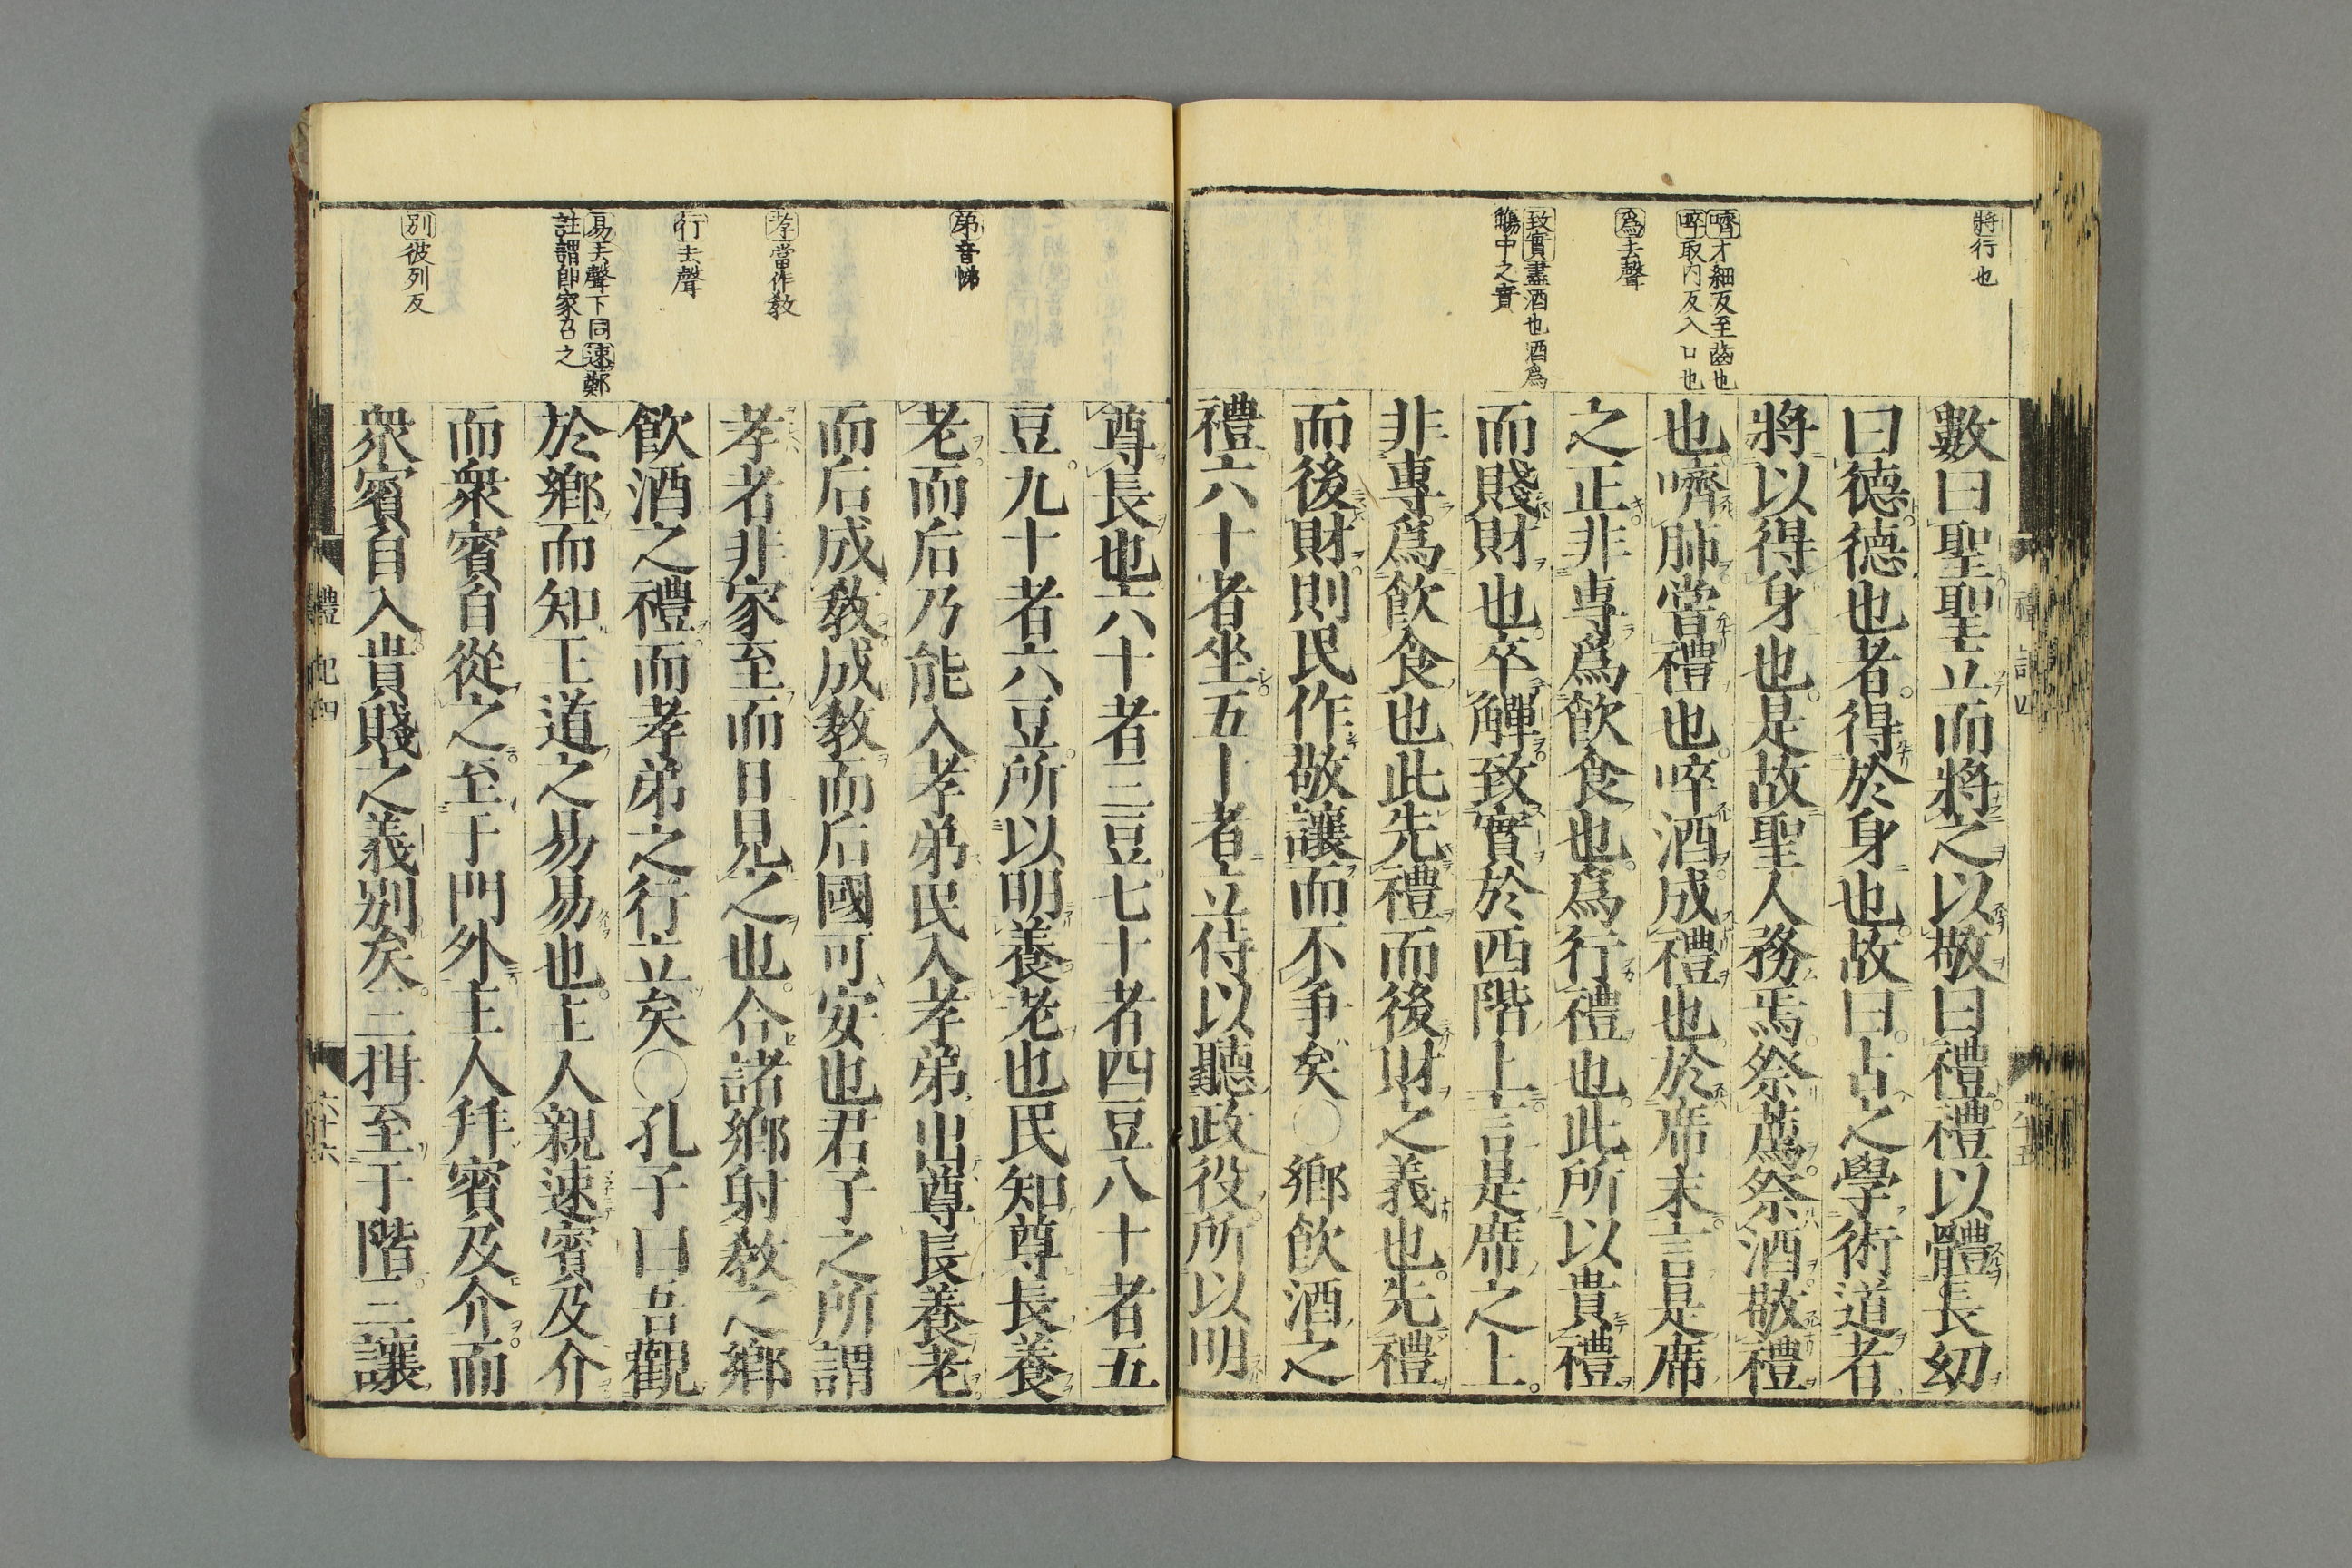 將行也
嚌才細反至齒也
啐取内反入口也
爲去聲
致實盡酒也酒爲
觴中之實
數曰聖聖立而將之以敬曰禮禮以體長幼
曰德德也者得於身也故曰古之學術道者
將以得身也是故聖人務焉祭薦祭酒敬禮
也嚌肺嘗禮也啐酒成禮也於席末言是席
之正非專爲飮食也爲行禮也此所以貴禮
而賤財也卒觶致實於西階上言是席之上
非專爲飮食也此先禮而後財之義也先禮
而後財則民作敬讓而不爭矣○鄉飮酒之
禮六十者坐五十者立侍以聽政役所以明
弟音悌
孝當作敎
行去聲
易去聲下同速鄭
註謂即家召之
別彼列反
尊長也六十者三豆七十者四豆八十者五
豆九十者六豆所以明養老也民知尊長養
老而后乃能入孝弟民入孝弟出尊長養老
而后成敎成敎而后國可安也君子之所謂
孝者非家至而日見之也合諸鄉射敎之鄉
飮酒之禮而孝弟之行立矣○孔子曰吾觀
於鄉而知王道之易易也主人親速賓及介
而衆賓自從之至于門外主人拜賓及介而
衆賓自入貴賤之義別矣三揖至于階三讓
禮記四
六十六